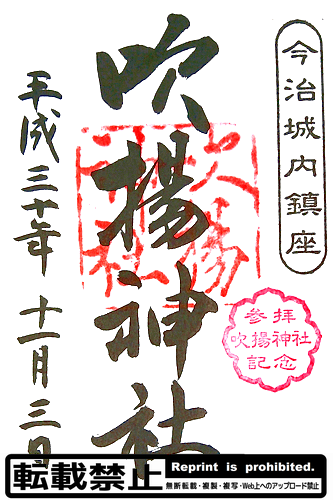 今治城内鎮座
吹揚神社
平成三十年十一月三日
参拝
吹揚神社
記念
転載禁止
Reprint is prohibited.
無断転載・複製・複写・Web上へのアップロード禁止